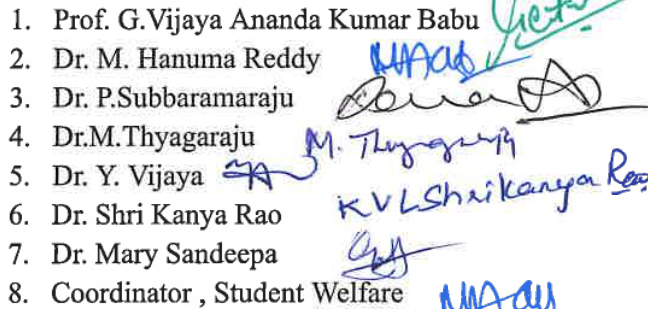 1. Prof. G.Vijaya Ananda Kumar Babu
2. Dr. M. Hanuma Reddy
3. Dr. P.Subbaramaraju
4. Dr.M.Thyagaraju M. Thyagaraju
5. Dr. Y. Vijaya
6. Dr. Shri Kanya Rao KVLShrikanya Rao
7. Dr. Mary Sandeepa
8. Coordinator , Student Welfare